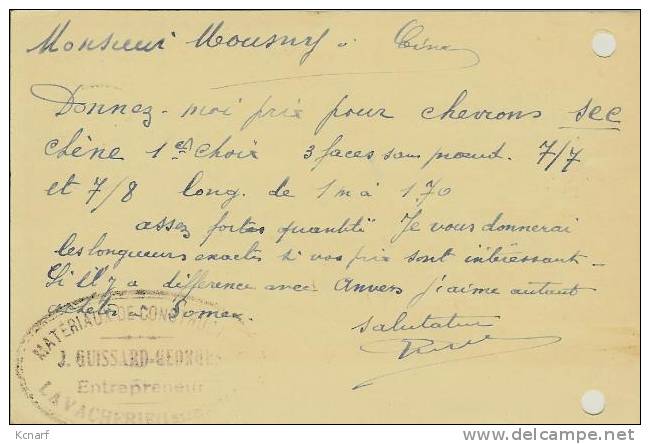 Monsieur Mousny à
Donnez-moi prix pour chevrons sec
chêne 1er choix 3 faces sans nœud. 7/7
et 7/8 long. de 1 m à 1.70
assez fortes quantité Je vous donnerai
les longueurs exactes si vos prix sont intéressant
Si il y a difference avec Anvers j'aime autant
acheter
salutation
MATERIAUX DE CONSTRUC
J. GUISSARD-GEORGES
Entrepreneur
LAVACHERIE
Kcnarf
delcampe.net